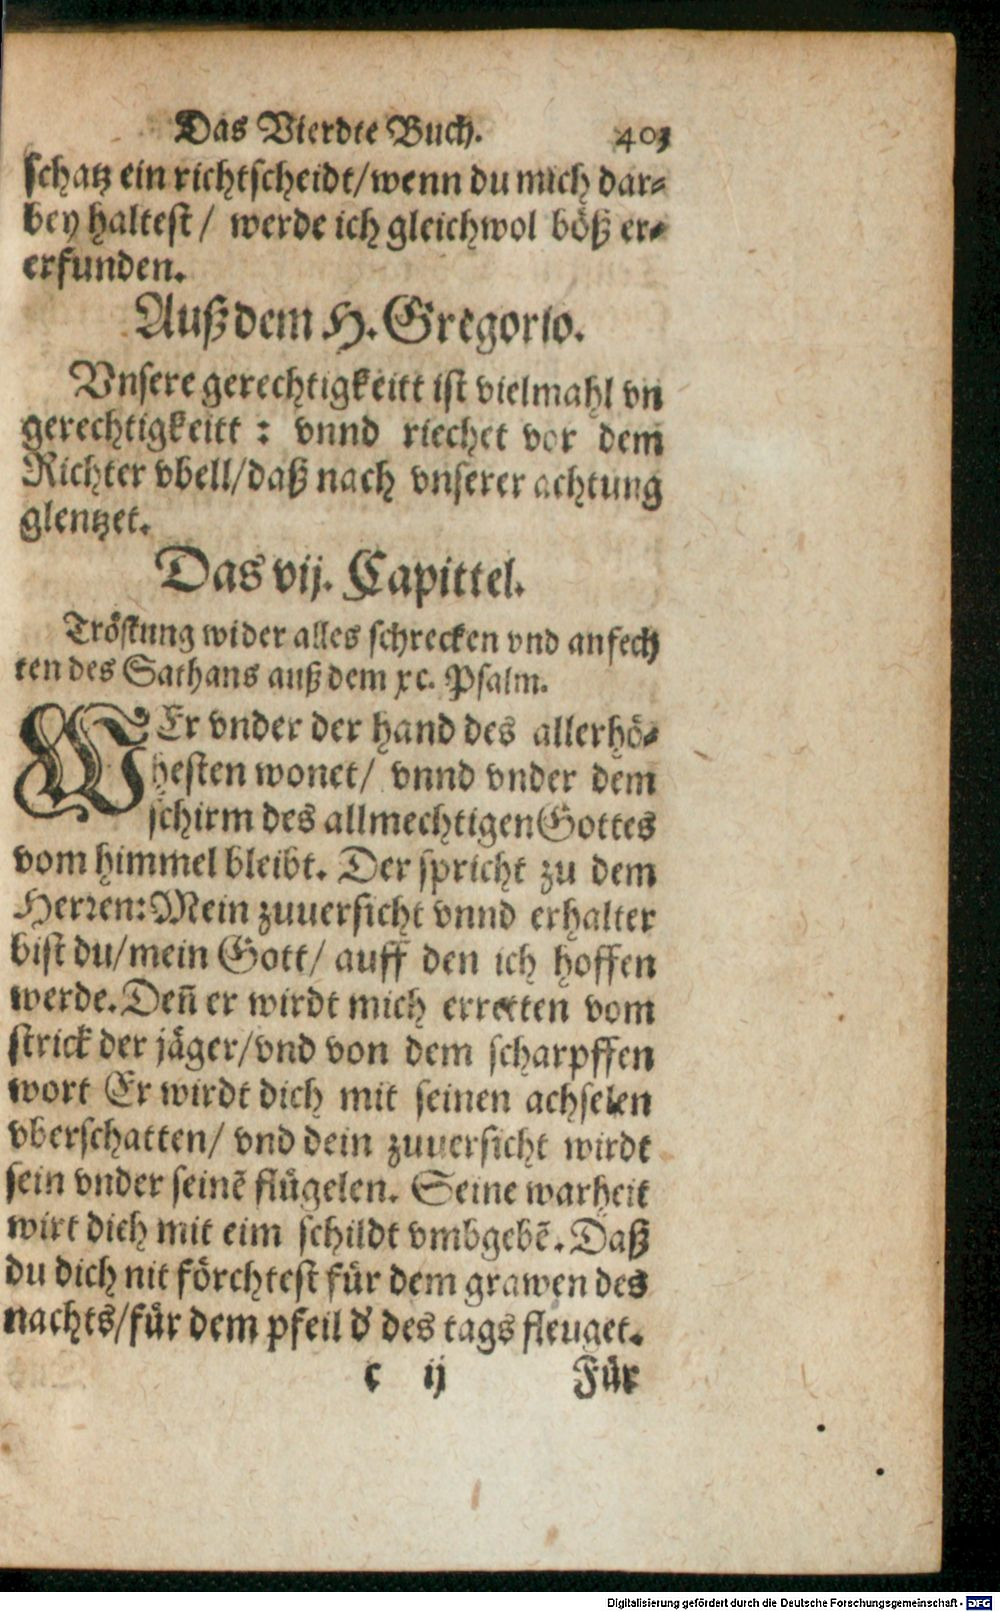 Das Vierdte Buch. 403
schatz ein richtscheidt/wenn du mich dar-
bey haltest/ werde ich gleichwol böß er-
erfunden.
Auß dem H. Gregorio.
Vnsere gerechtigkeitt ist vielmahl vn
gerechtigkeitt : vnnd riechet vor dem
Richter vbell/daß nach vnserer achtung
glentzet.
Das vij. Capittel.
Tröstung wider alles schrecken vnd anfech
ten des Sathans auß dem xc. Psalm.
WEr vnder der hand des allerhö-
hesten wonet/ vnnd vnder dem
schirm des allmechtigen Gottes
vom himmel bleibt. Der spricht zu dem
Herren: Mein zuuersicht vnnd erhalter
bist du/mein Gott/ auff den ich hoffen
werde. Deñ er wirdt mich erretten vom
strick der jäger/vnd von dem scharpffen
wort Er wirdt dich mit seinen achselen
vberschatten/ vnd dein zuuersicht wirdt
sein vnder seinẽ flügelen. Seine warheit
wirt dich mit eim schildt vmbgebẽ. Daß
du dich nit förchtest für dem grawen des
nachts/für dem pfeil d' des tags fleuget.
c ij Für
Digitalisierung gefördert durch die Deutsche Forschungsgemeinschaft - DFG